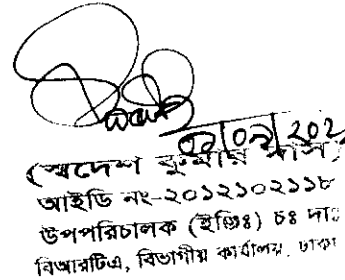 ২০/০৯/২০২
(স্বদেশ কুমার দাস)
আইডি নং-২০১২১০২১১৮
উপপরিচালক (ইঞ্জিঃ) চঃ দাঃ
বিআরটিএ, বিভাগীয় কার্যালয়, ঢাকা